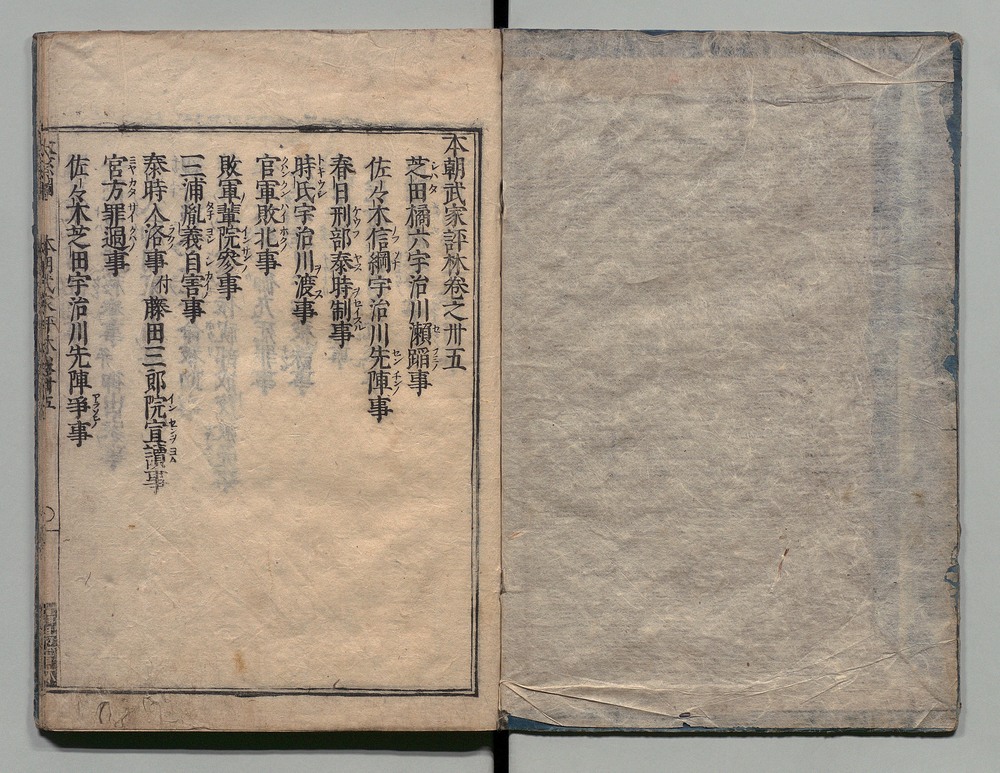 本朝武家評林巻之卅五
芝田橘六宇治川瀬蹈事
佐々木信綱宇治川先陣事
春日刑部泰時制事
時氏宇治川渡事
官軍敗北事
敗軍輩院参事
三浦胤義自害事
泰時入洛事 付 藤田三郎院宣讀事
宮方罪過事
佐々木芝田宇治川先陣爭事